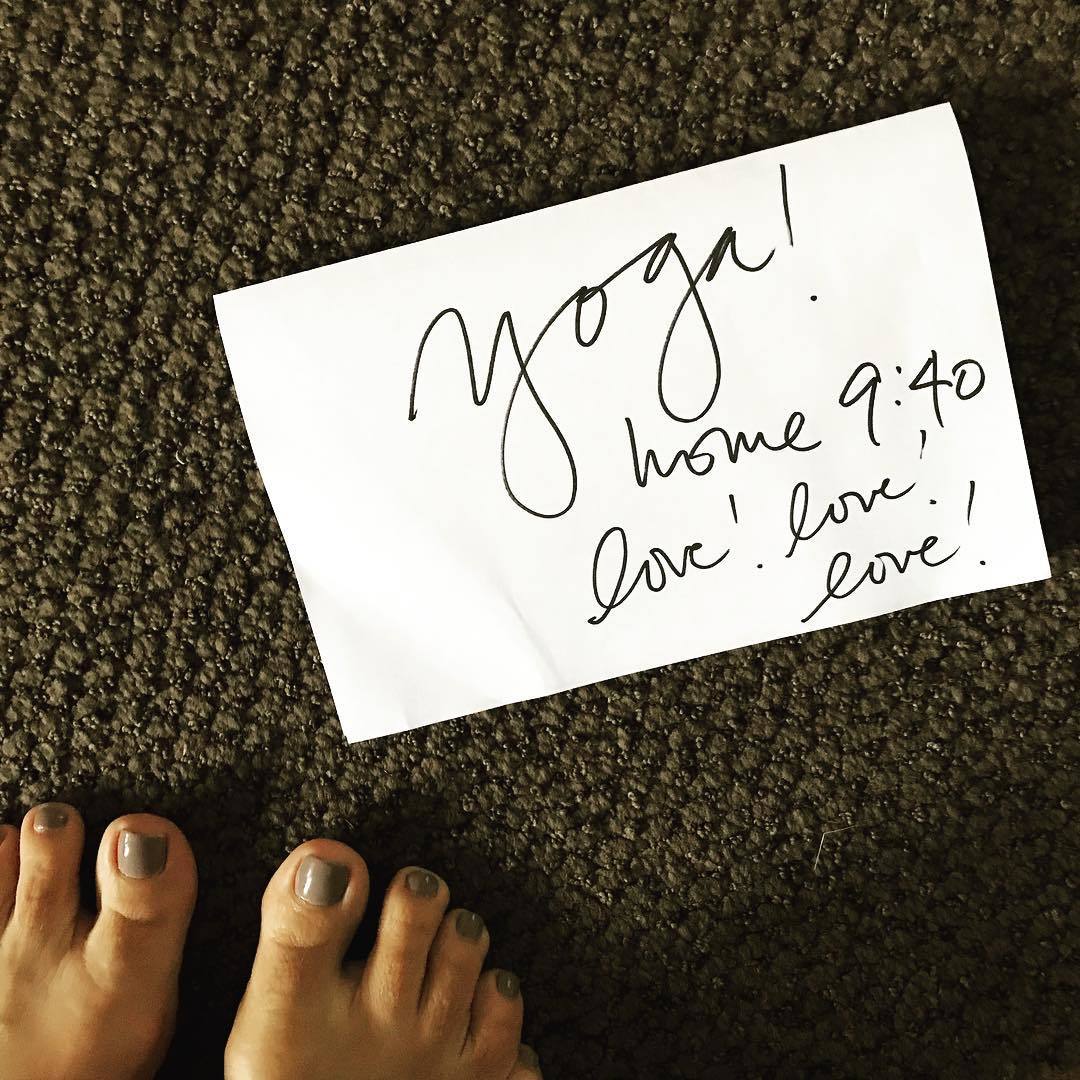 yoga!
home 9:40
love! love!
love!